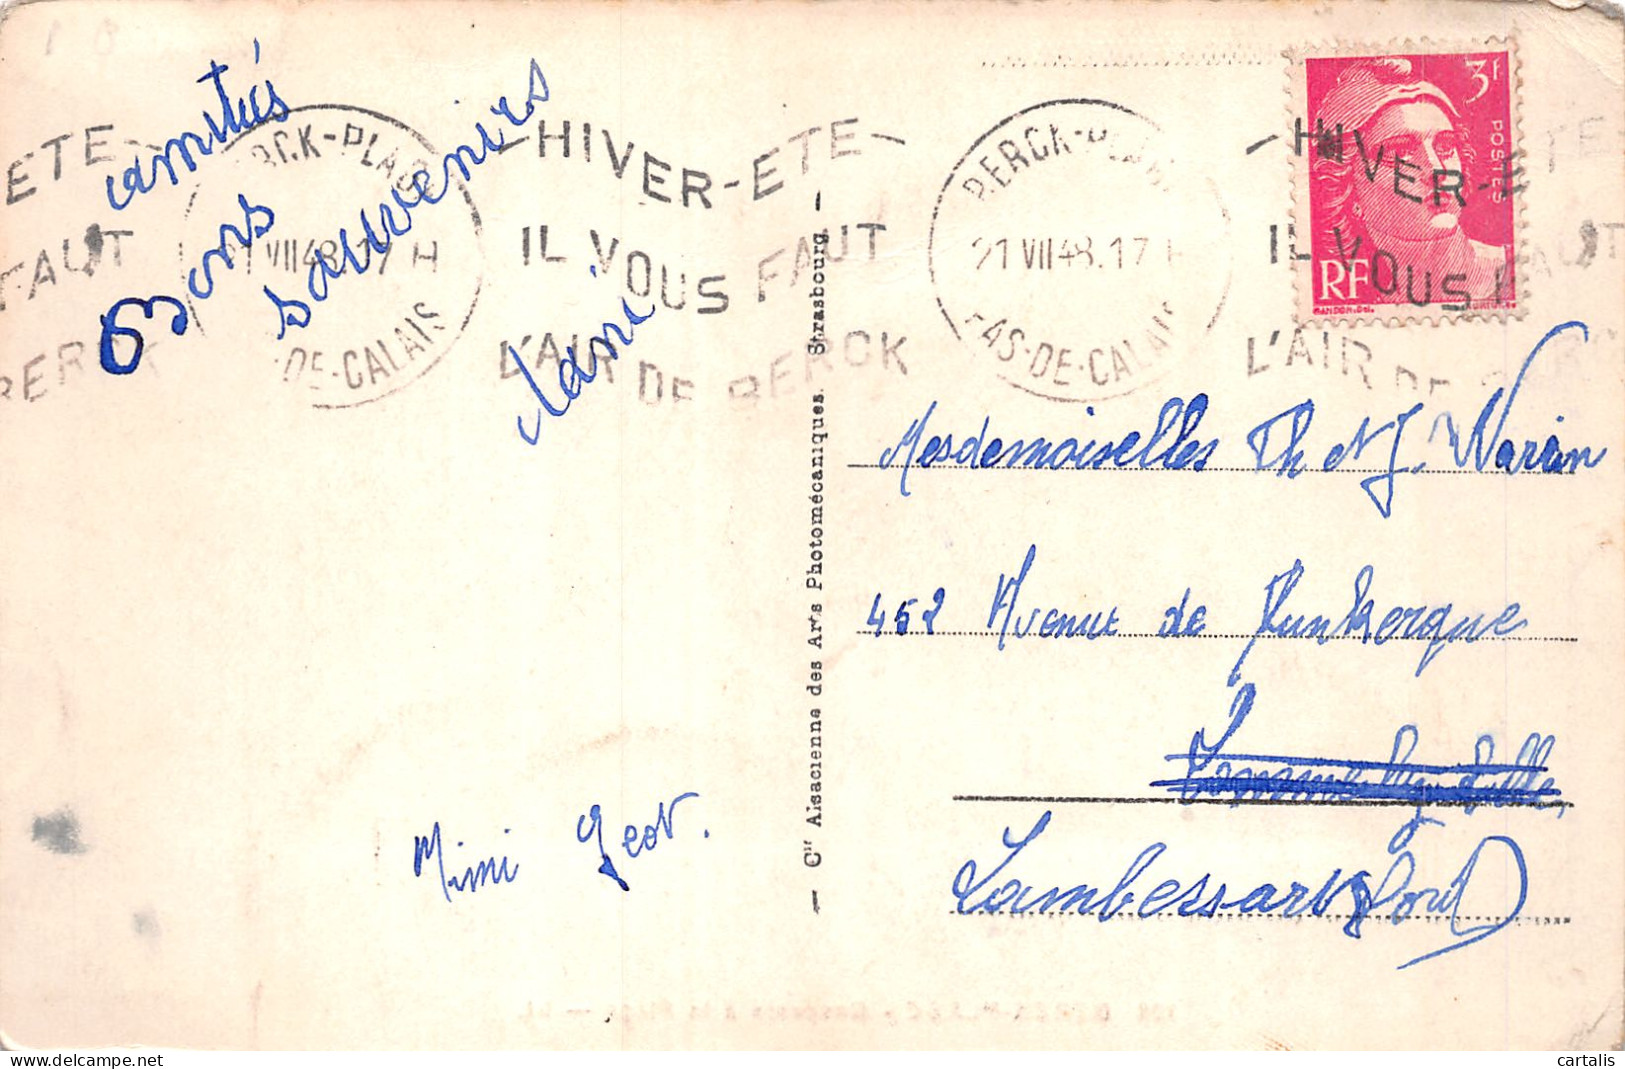 amitiés
Bons
souvenirs
Mimi Geot.
BERCK-PLAGE
21 VII 48. 17 H
PAS-DE-CALAIS
HIVER-ETE
IL VOUS FAUT
L'AIR DE BERCK
BERCK-PLAGE
21 VII 48. 17 H
PAS-DE-CALAIS
HIVER-ETE
IL VOUS FAUT
L'AIR DE
3F
POSTES
RF
GANDON.Del.
— Cie Alsacienne des Arts Photomécaniques. Strasbourg. —
Mesdemoiselles Th et J. Warin
452 Avenue de Dunkerque
Lambersart Nord
cartalis
www.delcampe.net